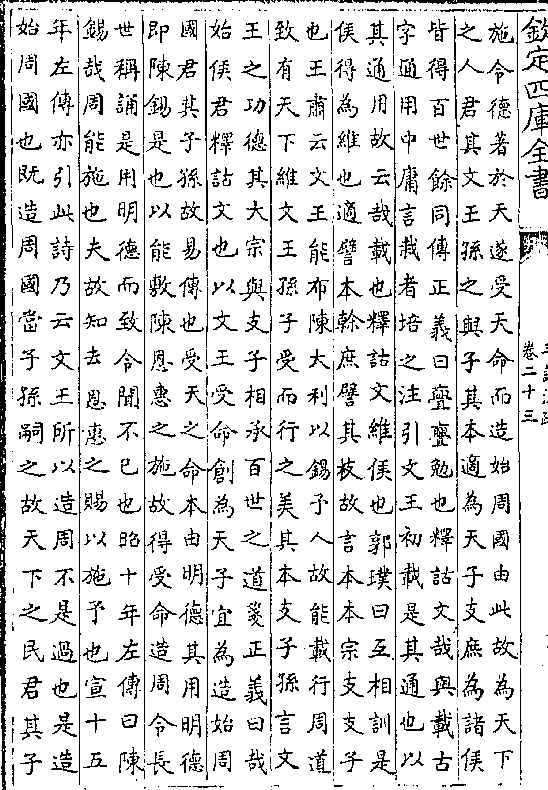 欽定四庫全書
卷二十三
施令德著於天遂受天命而造始周國由此故為天下
之人君其文王孫之與子其本適為天子支庶為諸侯
皆得百世餘同傳正義曰亹亹勉也釋詁文哉與載古
字通用中庸言栽者培之注引文王初載是其通也以
其通用故云哉載也釋詁文維侯也郭璞曰互相訓是
侯得為維也適譬本榦庶譬其枝故言本本宗支支子
也王肅云文王能布陳大利以錫予人故能載行周道
致有天下維文王孫子受而行之美其本支子孫言文
王之功德其大宗與支子相承百世之道箋正義曰哉
始侯君釋詁文也以文王受命創為天子宜為造始周
國君其子孫故易傳也受天之命本由明德其用明德
即陳錫是也以能敷陳恩惠之施故得受命造周令長
世稱誦是用明德而致令聞不已也昭十年左傳曰陳
錫哉周能施也夫故知去恩惠之賜以施予也宣十五
年左傳亦引此詩乃云文王所以造周不是過也是造
始周國也既造周國當子孫嗣之故天下之民君其子